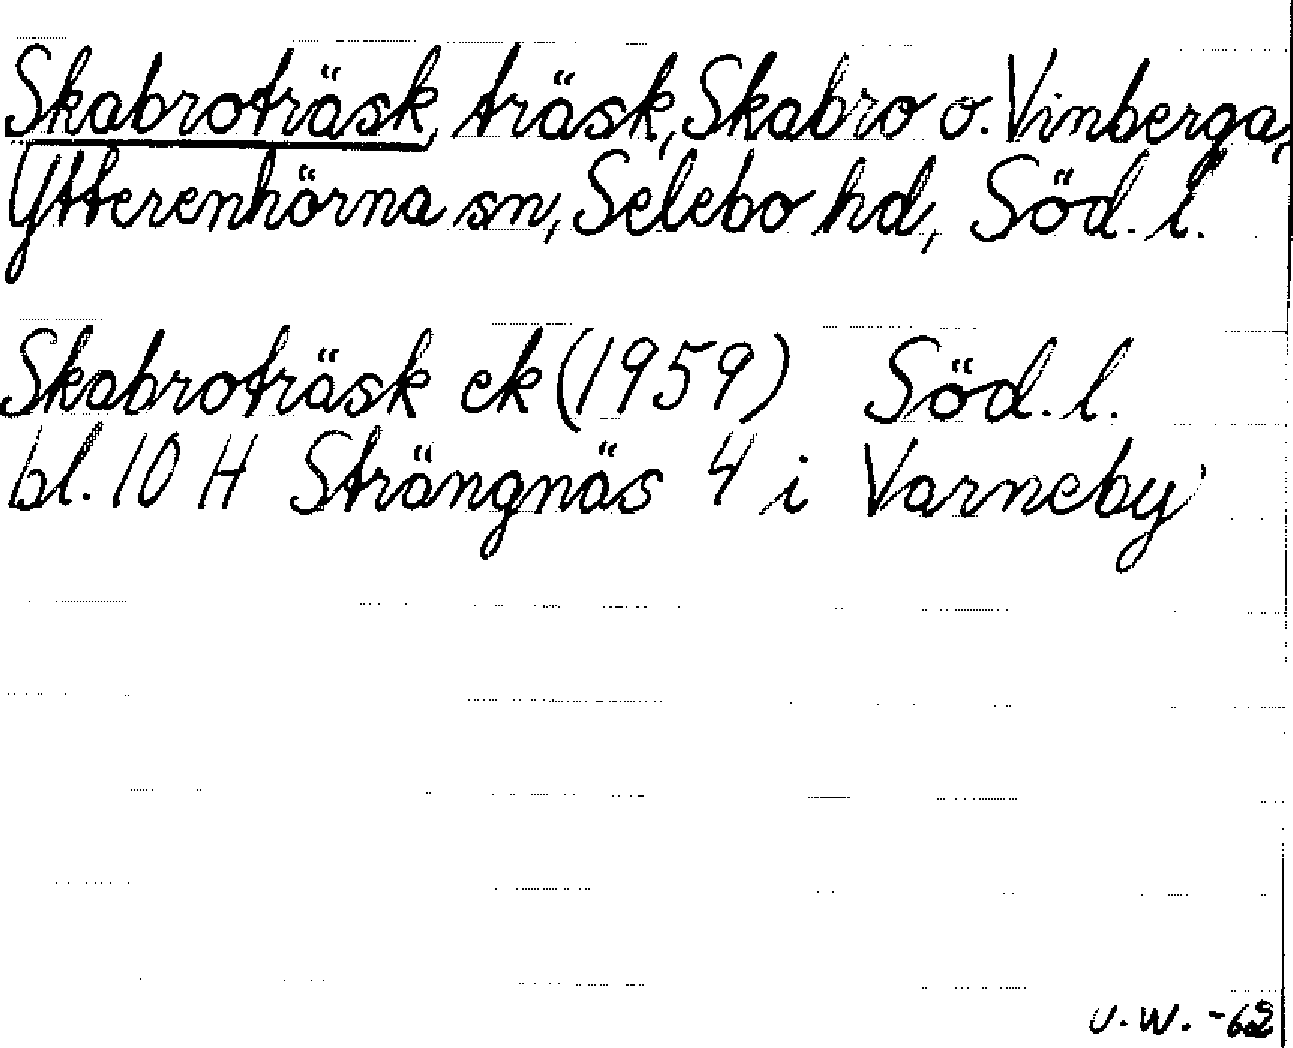 Skabroträsk, träsk, Skabro o. Vinberga,
Ytterenhörna sn, Selebo hd, Söd. l.
Skabroträsk ek (1959) Söd. l.
bl. 10 H Strängnäs 4 i Varneby
U.W. -62